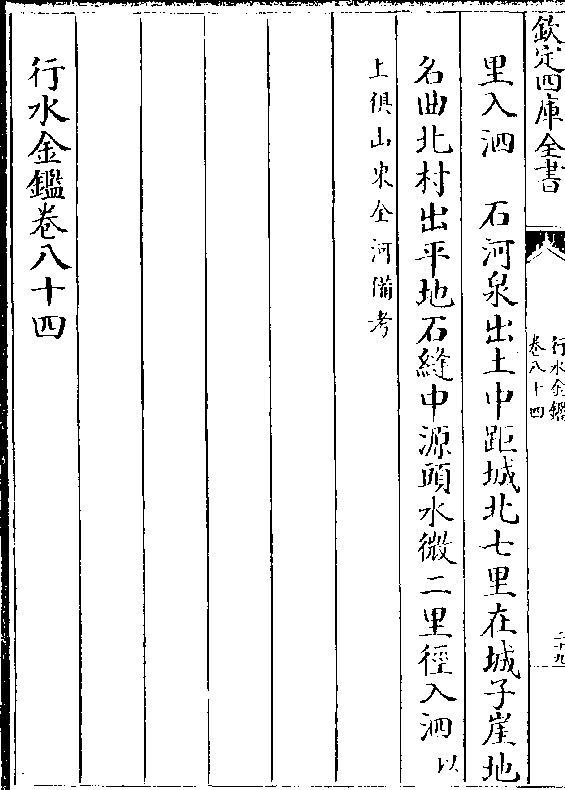 欽定四庫全書
行水金鑑
卷八十四
二十九
里入泗　石河泉出土中距城北七里在城子崖地
名曲北村出平地石縫中源頭水微二里徑入泗以
上俱山東全河備考
行水金鑑卷八十四